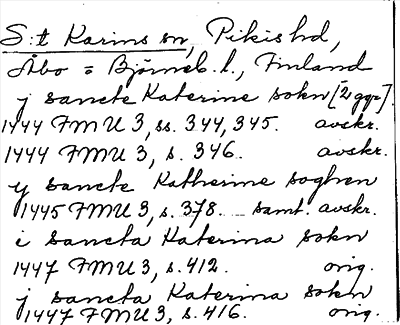 S:t Karins sn, Pikis hd,
Åbo = Björneb. l., Finland
j sancte Katerine sokn [2 ggr].
1444 FMU 3, ss. 344, 345. avskr.
1444 FMU 3, s. 346. avskr.
y sancte Katherine soghen
1445 FMU 3, s. 378. samt. avskr.
i sancta Katerina sokn
1447 FMU 3, s. 412. orig.
j sancta Katerina sokn
1447 FMU 3, s. 416. orig.